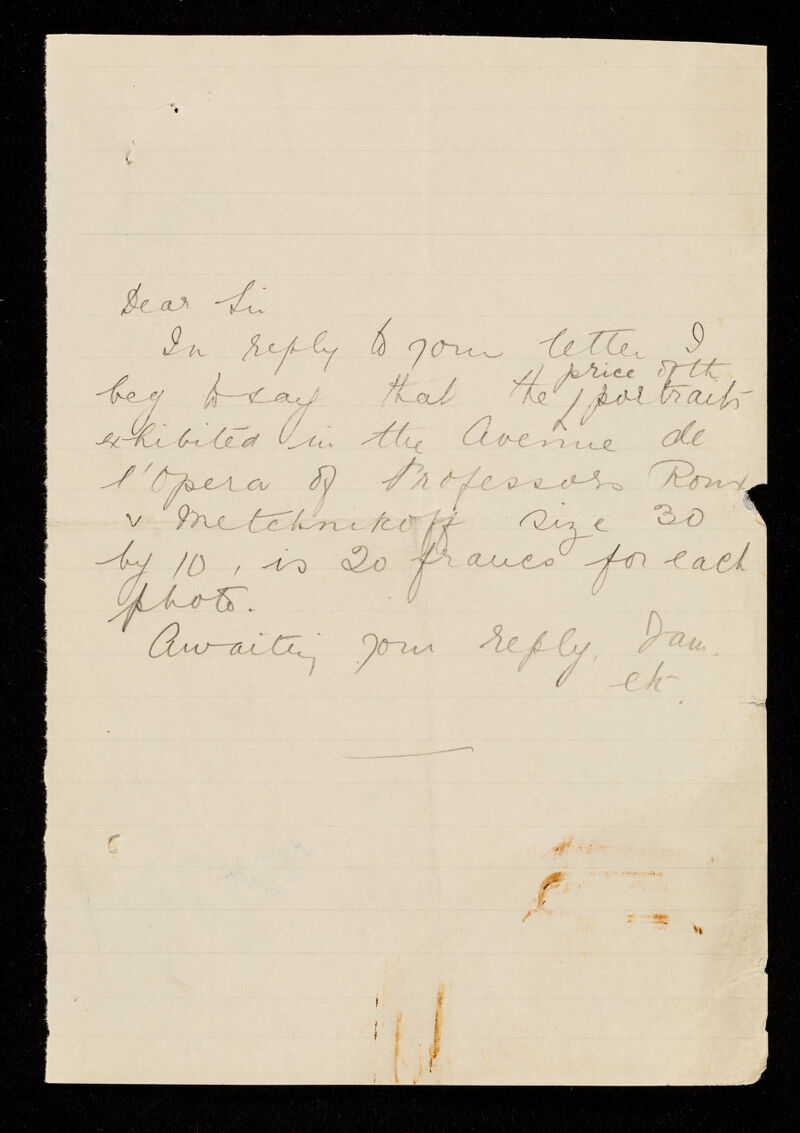 Dear Sir
In reply to your letter I
beg to say that the price of th portraits
exhibited in the Avenue de
l'Opera of Professors Roux
& Metchnikoff size 30
by 10, is 20 francs for each
photo.
Awaiting your reply, I am,
etc.